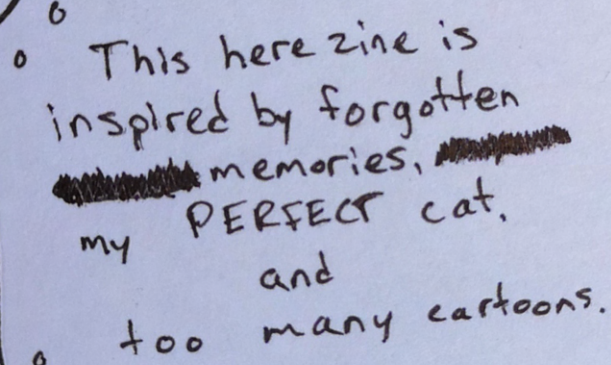 This here zine is
inspired by forgotten
memories,
my PERFECT cat,
and
too many cartoons.